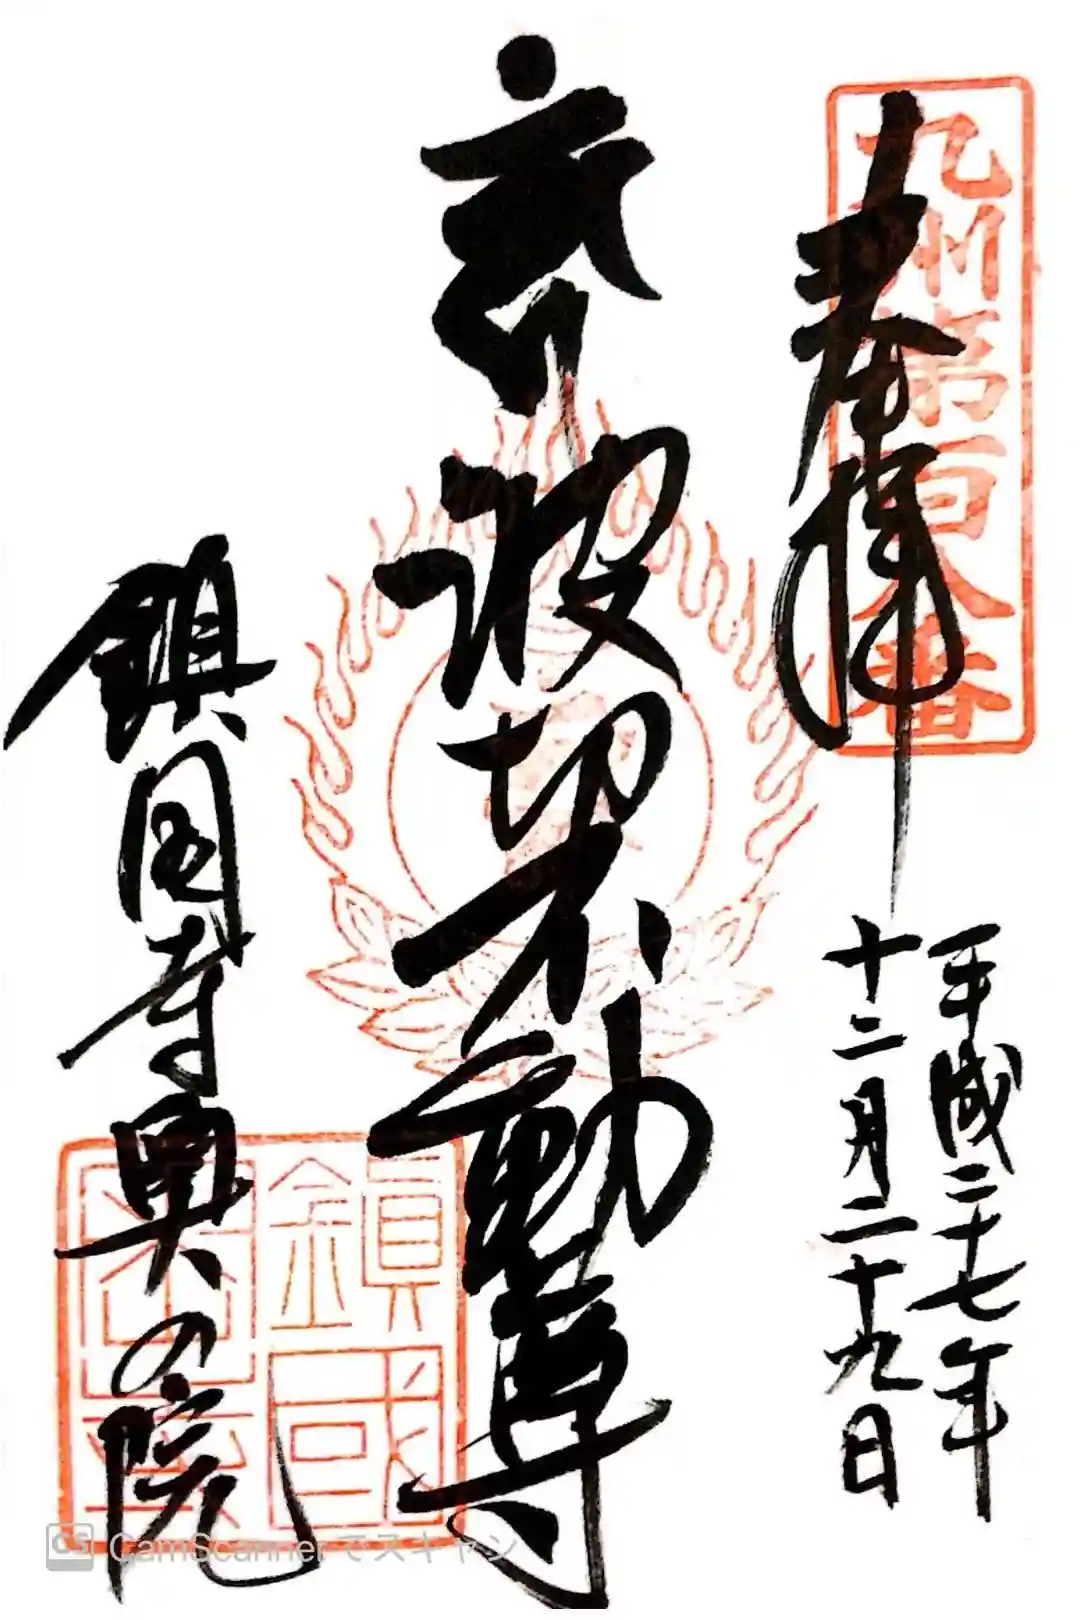 九州第百八番
奉拝
平成二十七年
十二月二十九日
波切不動尊
鎮国寺奥の院
鎮國
CamScannerでスキャン